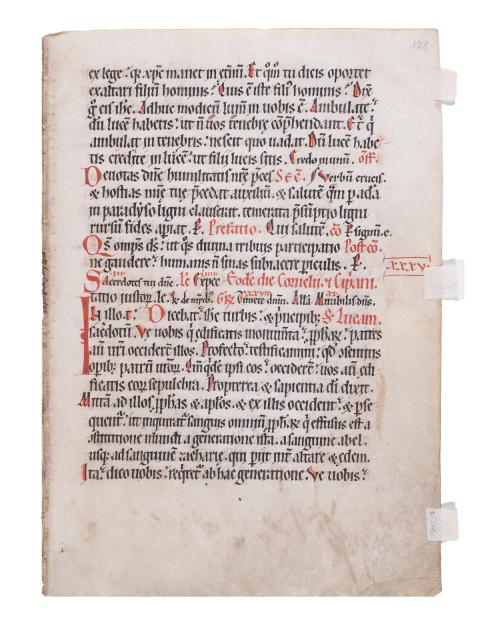 128
ex lege. qr xpc manet in etnu. Et qm tu dicis oportet
exaltari filiu hominis. Quis e iste fili hominis. Dix
g eis ihc. Adhuc modicu lum in uobis e. Ambulate.
du luce habetis. ut n uos tenebre cophendant. Et q
ambulat in tenebris. nescit quo uadit. Du luce habe
tis credite in luce. ut filii lucis sitis. Credo in unu. Off.
Deuotas dne humilitatis nre pces. Sec. Verbu crucis.
& hostias mise tue pcedat auxiliu. & salute qm p ada
in paradyso ligni clauserat. temerata psuptio ligni
rursu fides apiat. P. Prefatio. Qui salute. co P signu c.
Qs omps ds. ut qs diuina tribuis participatio Postco.
ne gaudere. humanis n sinas subiacere piculis. P.
.xxxv.
Sacerdotes tui dne. Eode die Cornelii & Cipani.
tatio iustor. Venite dnm. Alla Mirabilis dns.
In illo t. Dicebat ihc turbis. & pncipib; S Lucam.
sacdotu. Ve uobis q edificatis monumta pphar. patres
au uri occidert illos. Profecto testificamini. qd osentitis
opib; patru uror. Qm qde ipsi eos occidert. uos au edi
ficatis eor sepulchra. Propterea & sapientia di dixit.
Mitta ad illos pphas & aplos. & ex illis occident. & pse
quent. ut inquirat sanguis omniu pphar q effusus est a
ostitutione mundi a generatione ista. a sanguine abel.
usq; ad sanguine zacharie. qui piit int altare & edem.
Ita dico uobis. requiret ab hac generatione. Ve uobis